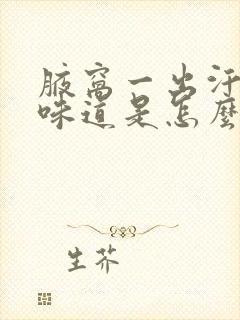 腋窝一出汗
味道是怎麽
生芥